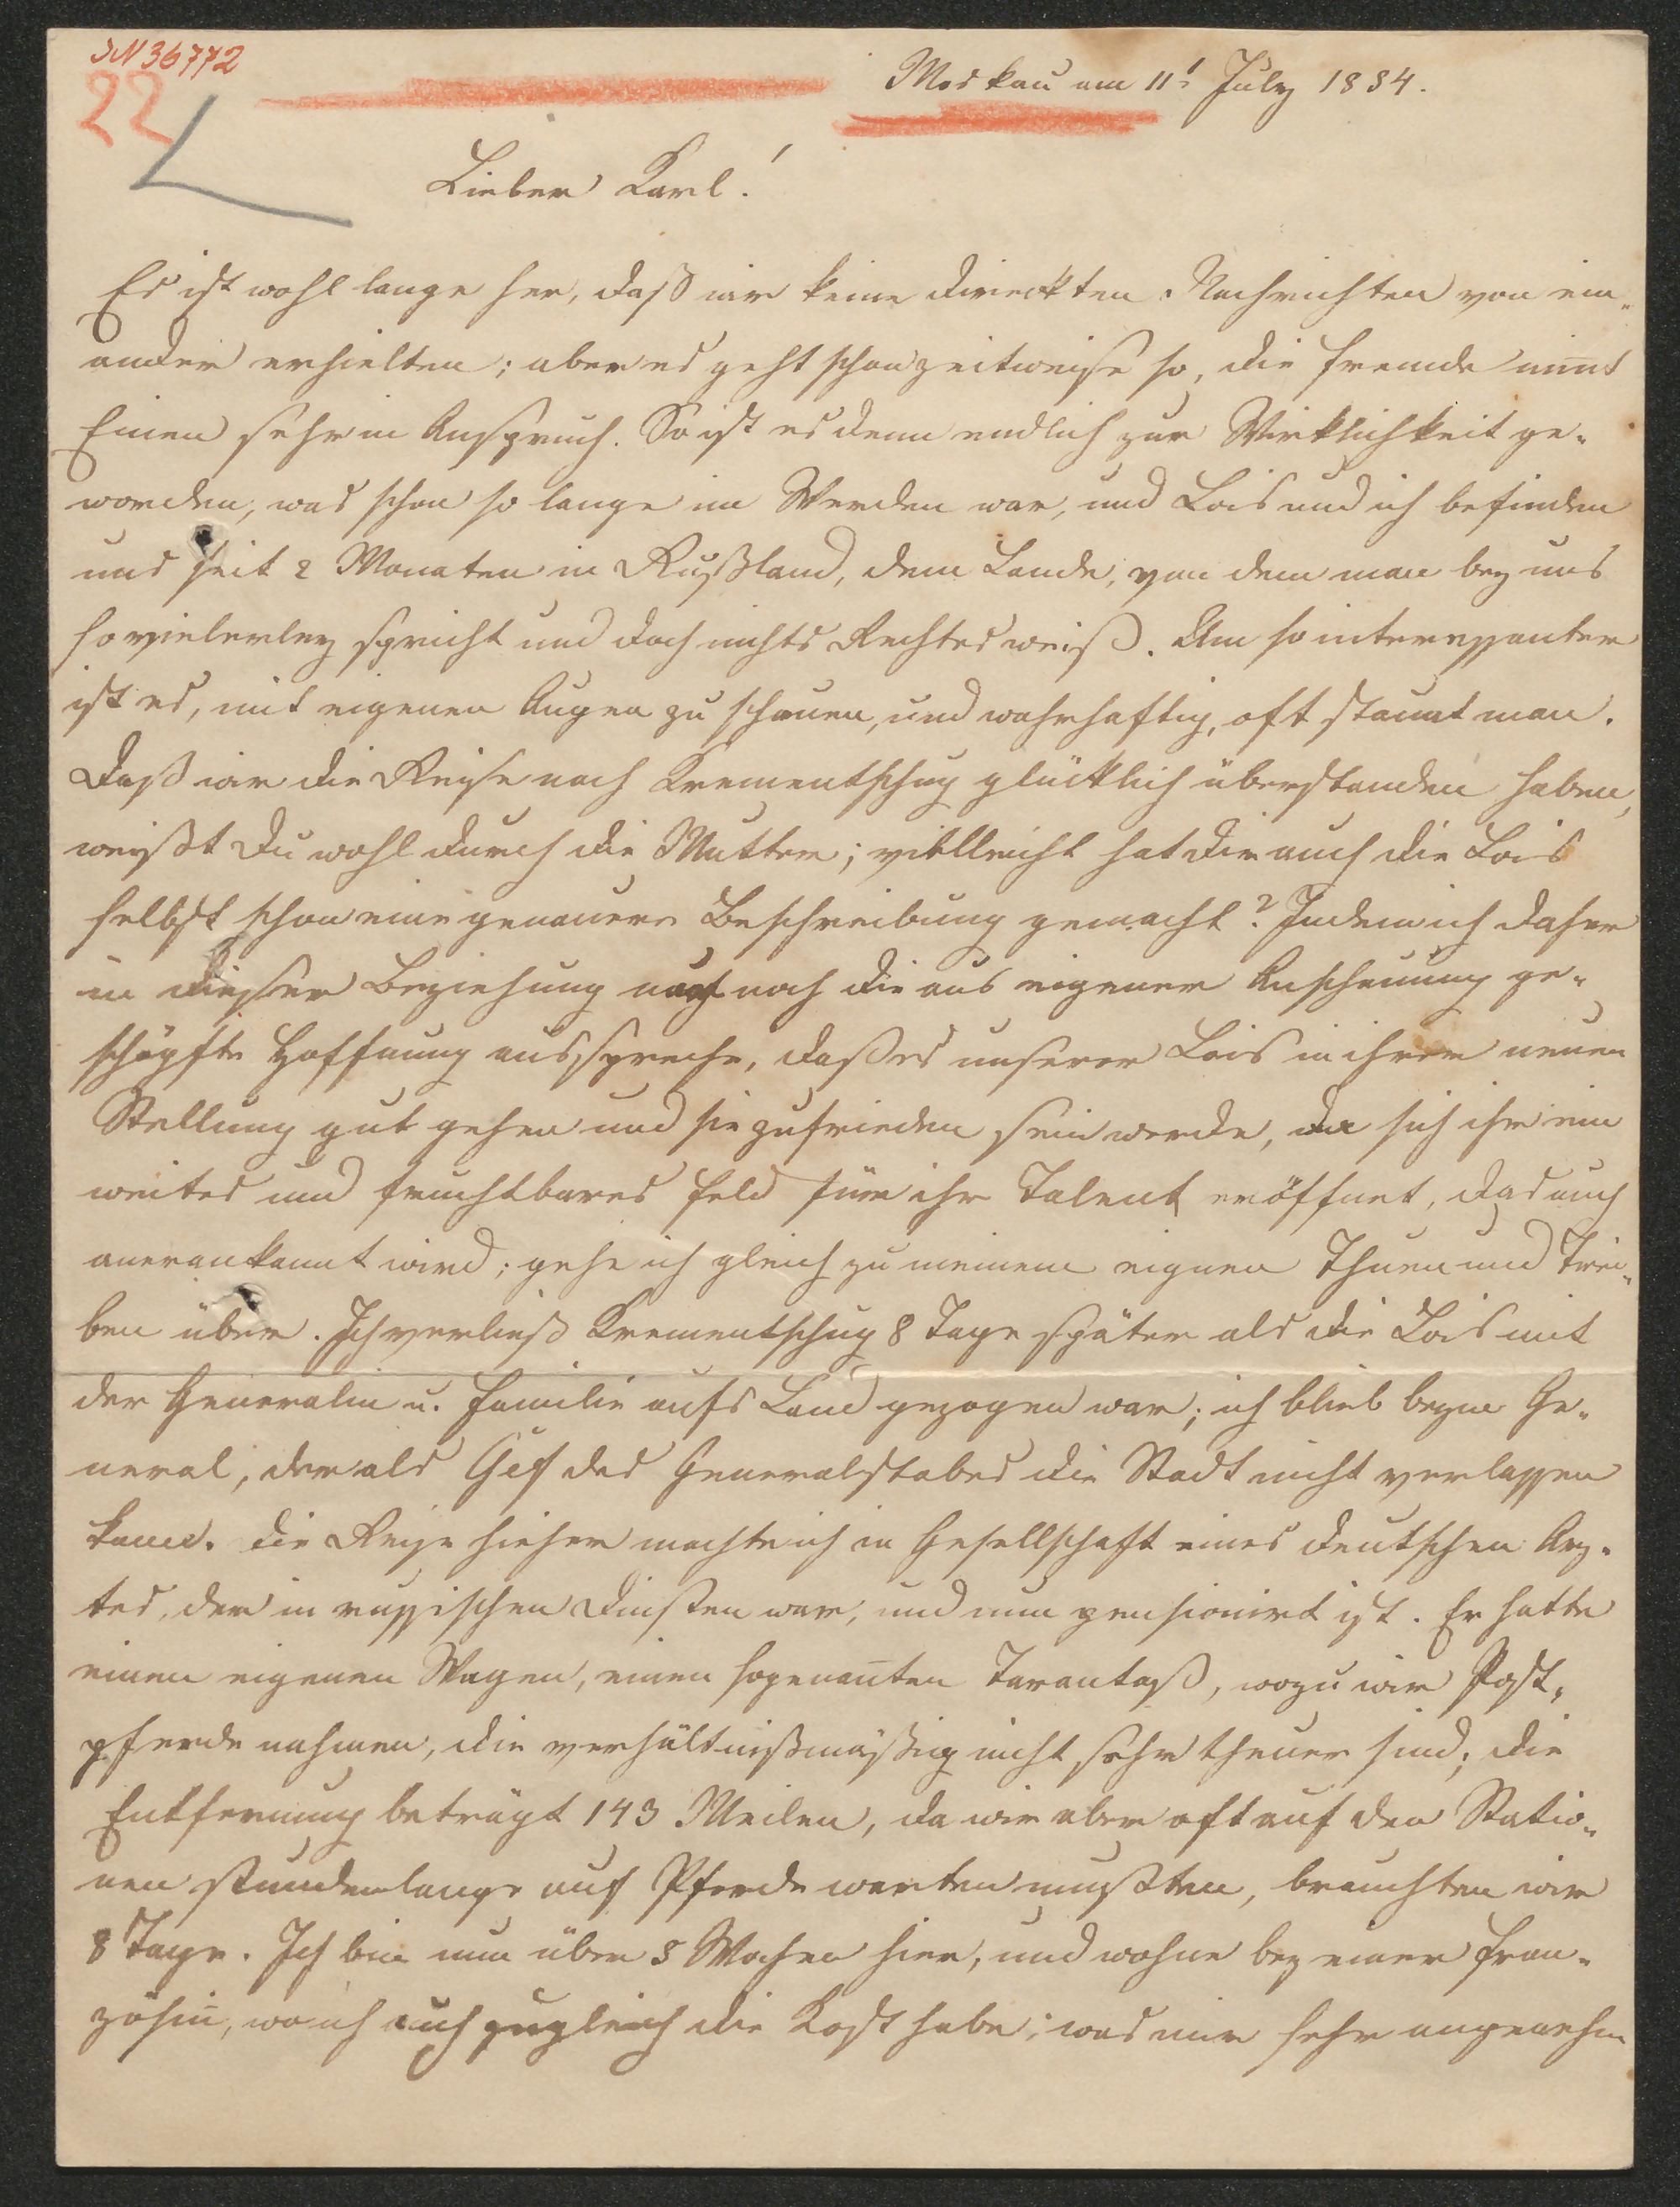 IN 36772
22
Moskau am 11t July 1834.
Lieber Karl!
Es ist wohl lange her, daß wir keine direckten Nachrichten von ein-
ander erhielten; aber es geht schon zeitweise so, die Fremde nim̄t
Einen sehr in Anspruch. So ist es denn endlich zur Wirklichkeit ge-
worden, was schon so lange im Werden war, und Lois und ich befinden
uns seit 2 Monaten in Rußland, dem Lande, von dem man bey uns
so vielerley spricht und doch nichts Rechtes weiß. Um so interessanter
ist es, mit eigenen Augen zu schauen, und wahrhaftig, oft staunt man.
Daß wir die Reise nach Krementschug glücklich überstanden haben,
weißt Du wohl durch die Mutter; villeicht hat Dir auch die Lois
selbst schon eine genauere Beschreibung gemacht? Indem ich daher
in dieser Beziehung nur noch die aus eigener Anschauung ge-
schöpfte Hoffnung ausspreche, daß es unserer Lois in ihrer neuen
Stellung gut gehen und sie zufrieden sein werde, da sich ihr ein
weites und fruchtbares Feld für ihr Talent eröffnet, das auch
anerankannt wird; gehe ich gleich zu meinem eignen Thuen und Trei-
ben über. Ich verließ Krementschug 8 Tage später als die Lois mit
der Generalin u. Familie aufs Land gezogen war; ich blieb beym Ge-
neral, der als Chef des Generalstabes die Stadt nicht verlassen
kann. Die Reise hieher machte ich in Gesellschaft eines deutschen Arz-
tes, der in russischen Dinsten war, und nun pensionirt ist. Er hatte
einen eigenen Wagen, einen sogenan̄ten Tarantaß, wozu wir Post-
pferde nahmen, die verhältnißmäßig nicht sehr theuer sind; die
Entfernung beträgt 143 Meilen, da wir aber oft auf den Statio-
nen stundenlange auf Pferde warten mußten, brauchten wir
8 Tage. Ich bin nun über 3 Wochen hier, und wohne bey einer Fran-
zösin̄, wo ich auch zugleich die Kost habe; was mir sehr angenehm